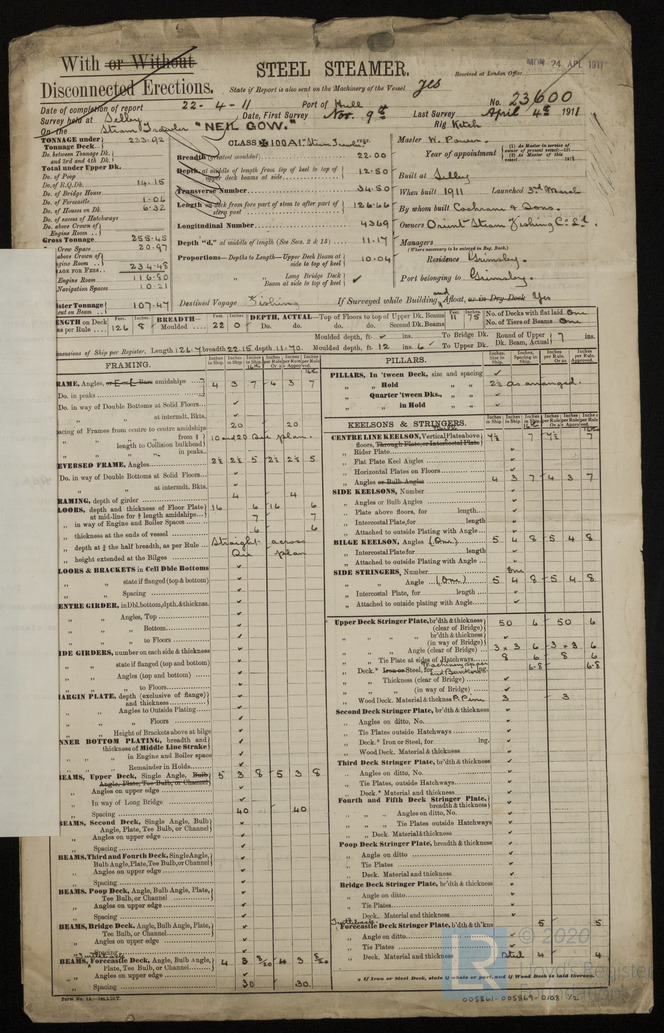 With or Without
Disconnected Erections.
STEEL STEAMER.
State if Report is also sent on the Machinery of the Vessel yes
Received at London Office
MON 24 APL 1911
Date of completion of report 22-4-11 Port of Hull No. 23,600
Survey held at Selby Date, First Survey Nov. 9th Last Survey April 4th 1911
On the Steam Trawler "NEIL GOW." Rig Ketch
TONNAGE under Tonnage Deck 233.92
Do. between Tonnage Dk. and 3rd and 4th Dk.
Total under Upper Dk.
Do. of Poop
Do. of R.Q.Dk. 14.15
Do. of Bridge House
Do. of Forecastle 1.06
Do. of Houses on Dk. 6.32
Do. of excess of Hatchways
Do. above Crown of Engine Room
Gross Tonnage 255.45
Crew Space 20.97
above Crown of Engine Room
234.48
Engine Room 116.80
Navigation Spaces 10.21
107.47
CLASS 100A1 Steam Trawler
Breadth (greatest moulded) 22.00
Depth, at middle of length from top of keel to top of upper deck beams at side 12.50
Transverse Number 34.50
Length on deck from fore part of stem to after part of stern post 126.66
Longitudinal Number 4369
Depth "d," at middle of length (See Secs. 2 & 13) 11.17
Proportions—Depths to Length—Upper Deck Beam at side to top of keel 10.04
Long Bridge Deck Beam at side to top of keel
Destined Voyage Fishing
If Surveyed while Building, and Afloat, or in Dry Dock Yes
Master W. Power.
Year of appointment
Built at Selby
When built 1911 Launched 3rd March
By whom built Cochrane & Sons.
Owners Orient Steam Fishing Co. Ld.
Managers
(Where necessary to be entered in Reg. Book.)
Residence Grimsby.
Port belonging to Grimsby.
LENGTH on Deck as per Rule 126 8
BREADTH—Moulded 22 0
DEPTH, ACTUAL—Top of Floors to top of Upper Dk. Beams 11 75
Do. do. do. do. Second Dk. Beams
No. of Decks with flat laid One
No. of Tiers of Beams One
Moulded depth, ft. ins. To Bridge Dk. Round of Upper Dk. Beam, Actual 7 ins.
Dimensions of Ship per Register, Length 126.7 breadth 22.15 depth 11.70. Moulded depth, ft. 12 ins. 6 To Upper Dk.
FRAMING.
FRAME, Angles, or E or L Bars amidships 4 3 7 4 3 7
Do. in peaks
Do. in way of Double Bottoms at Solid Floors
" " at intermdt. Bkts.
Spacing of Frames from centre to centre amidships 20 20
length to Collision bulkhead 10 and 20 See plan.
in peaks
REVERSED FRAME, Angles 2½ 2½ 5 2½ 2½ 5
Do. in way of Double Bottoms at Solid Floors
" " at intermdt. Bkts.
FRAMING, depth of girder 4 4
FLOORS, depth and thickness of Floor Plate at mid-line for ½ length amidships 16 6 16 6
in way of Engine and Boiler Spaces 7 7
thickness at the ends of vessel 6 6
depth at ¾ the half breadth, as per Rule Straight across
height extended at the Bilges See plan
FLOORS & BRACKETS in Cell Dble Bottoms
state if flanged (top & bottom)
Spacing
CENTRE GIRDER, in Dbl. bottom, dpth. & thicknss.
Angles, Top
Bottom
to Floors
SIDE GIRDERS, number on each side & thickness
state if flanged (top and bottom)
Angles (top and bottom)
to Floors
MARGIN PLATE, depth (exclusive of flange) and thickness
Angles to Outside Plating
Floors
Height of Brackets above at bilge
INNER BOTTOM PLATING, breadth and thickness of Middle Line Strake
in Engine and Boiler space
Remainder in Holds
BEAMS, Upper Deck, Single Angle, Bulb Angle, Plate, Tee Bulb, or Channel 5 3 8 5 3 8
Angles on upper edge
In way of Long Bridge
Spacing 40 40
BEAMS, Second Deck, Single Angle, Bulb Angle, Plate, Tee Bulb, or Channel
Angles on upper edge
Spacing
BEAMS, Third and Fourth Deck, Single Angle, Bulb Angle, Plate, Tee Bulb, or Channel
Angles on upper edge
Spacing
BEAMS, Poop Deck, Angle, Bulb Angle, Plate, Tee Bulb, or Channel
Angles on upper edge
Spacing
BEAMS, Bridge Deck, Angle, Bulb Angle, Plate, Tee Bulb, or Channel
Angles on upper edge
Spacing
BEAMS, Forecastle Deck, Angle, Bulb Angle, Plate, Tee Bulb, or Channel 4 3 4 3
Angles on upper edge
Spacing 30 30
Form No. 1A.
PILLARS.
PILLARS, In 'tween Deck, size and spacing
" Hold 2½ as arranged.
Quarter 'tween Dks.,
in Hold
KEELSONS & STRINGERS.
CENTRE LINE KEELSON, Vertical Plate above floors, Through Plate, or Intercostal Plate 7½ 7 7½ 7
Rider Plate
Flat Plate Keel Angles
Horizontal Plates on Floors
Angles or Bulb Angles 4 3 7 4 3 7
SIDE KEELSONS, Number
Angles or Bulb Angles
Plate above floors, for length
Intercostal Plate, for length
Attached to outside Plating with Angle
BILGE KEELSON, Angles (One) 5 4 8 5 4 8
Intercostal Plate for length
Attached to outside Plating with Angle
SIDE STRINGERS, Number One
Angle (One) 5 4 8 5 4 8
Intercostal Plate, for length
Attached to outside plating with Angle
Upper Deck Stringer Plate, br'dth & thickness (clear of Bridge) 50 6 50 6
br'dth & thickness (in way of Bridge)
Angle (clear of Bridge) 3 x 3 6 3 x 3 6
Tie Plate at sides of Hatchways 8 6 8 6
Deck.* Iron or Steel, for Machinery space and Bunkers lng. 6-8 6-8
Thickness (clear of Bridge)
(in way of Bridge)
Wood Deck. Material & thickns P. Pine 3 3
Second Deck Stringer Plate, br'dth & thickness
Angles on ditto, No.
Tie Plates outside Hatchways
Deck.* Iron or Steel, for lng.
Wood Deck. Material & thickness
Third Deck Stringer Plate, br'dth & thickness
Angles on ditto, No.
Tie Plates, outside Hatchways
Deck.* Material and thickness
Fourth and Fifth Deck Stringer Plate, breadth & thickness
Angles on ditto, No.
Tie Plates outside Hatchways
Deck. Material & thickness
Poop Deck Stringer Plate, breadth & thickness
Angle on ditto
Tie Plates
Deck. Material and thickness
Bridge Deck Stringer Plate, br'dth & thickness
Angle on ditto
Tie Plates
Deck. Material and thickness
Forecastle Deck Stringer Plate, b'dth & th'kns 5 5
Angle on ditto
Tie Plates
Deck. Material and thickness Steel 4 4
* If Iron or Steel Deck, state if whole or part, and if Wood Deck is laid thereon.
© 2020
LR
Lloyd's Register
Foundation
005861-005869-0108 1/2